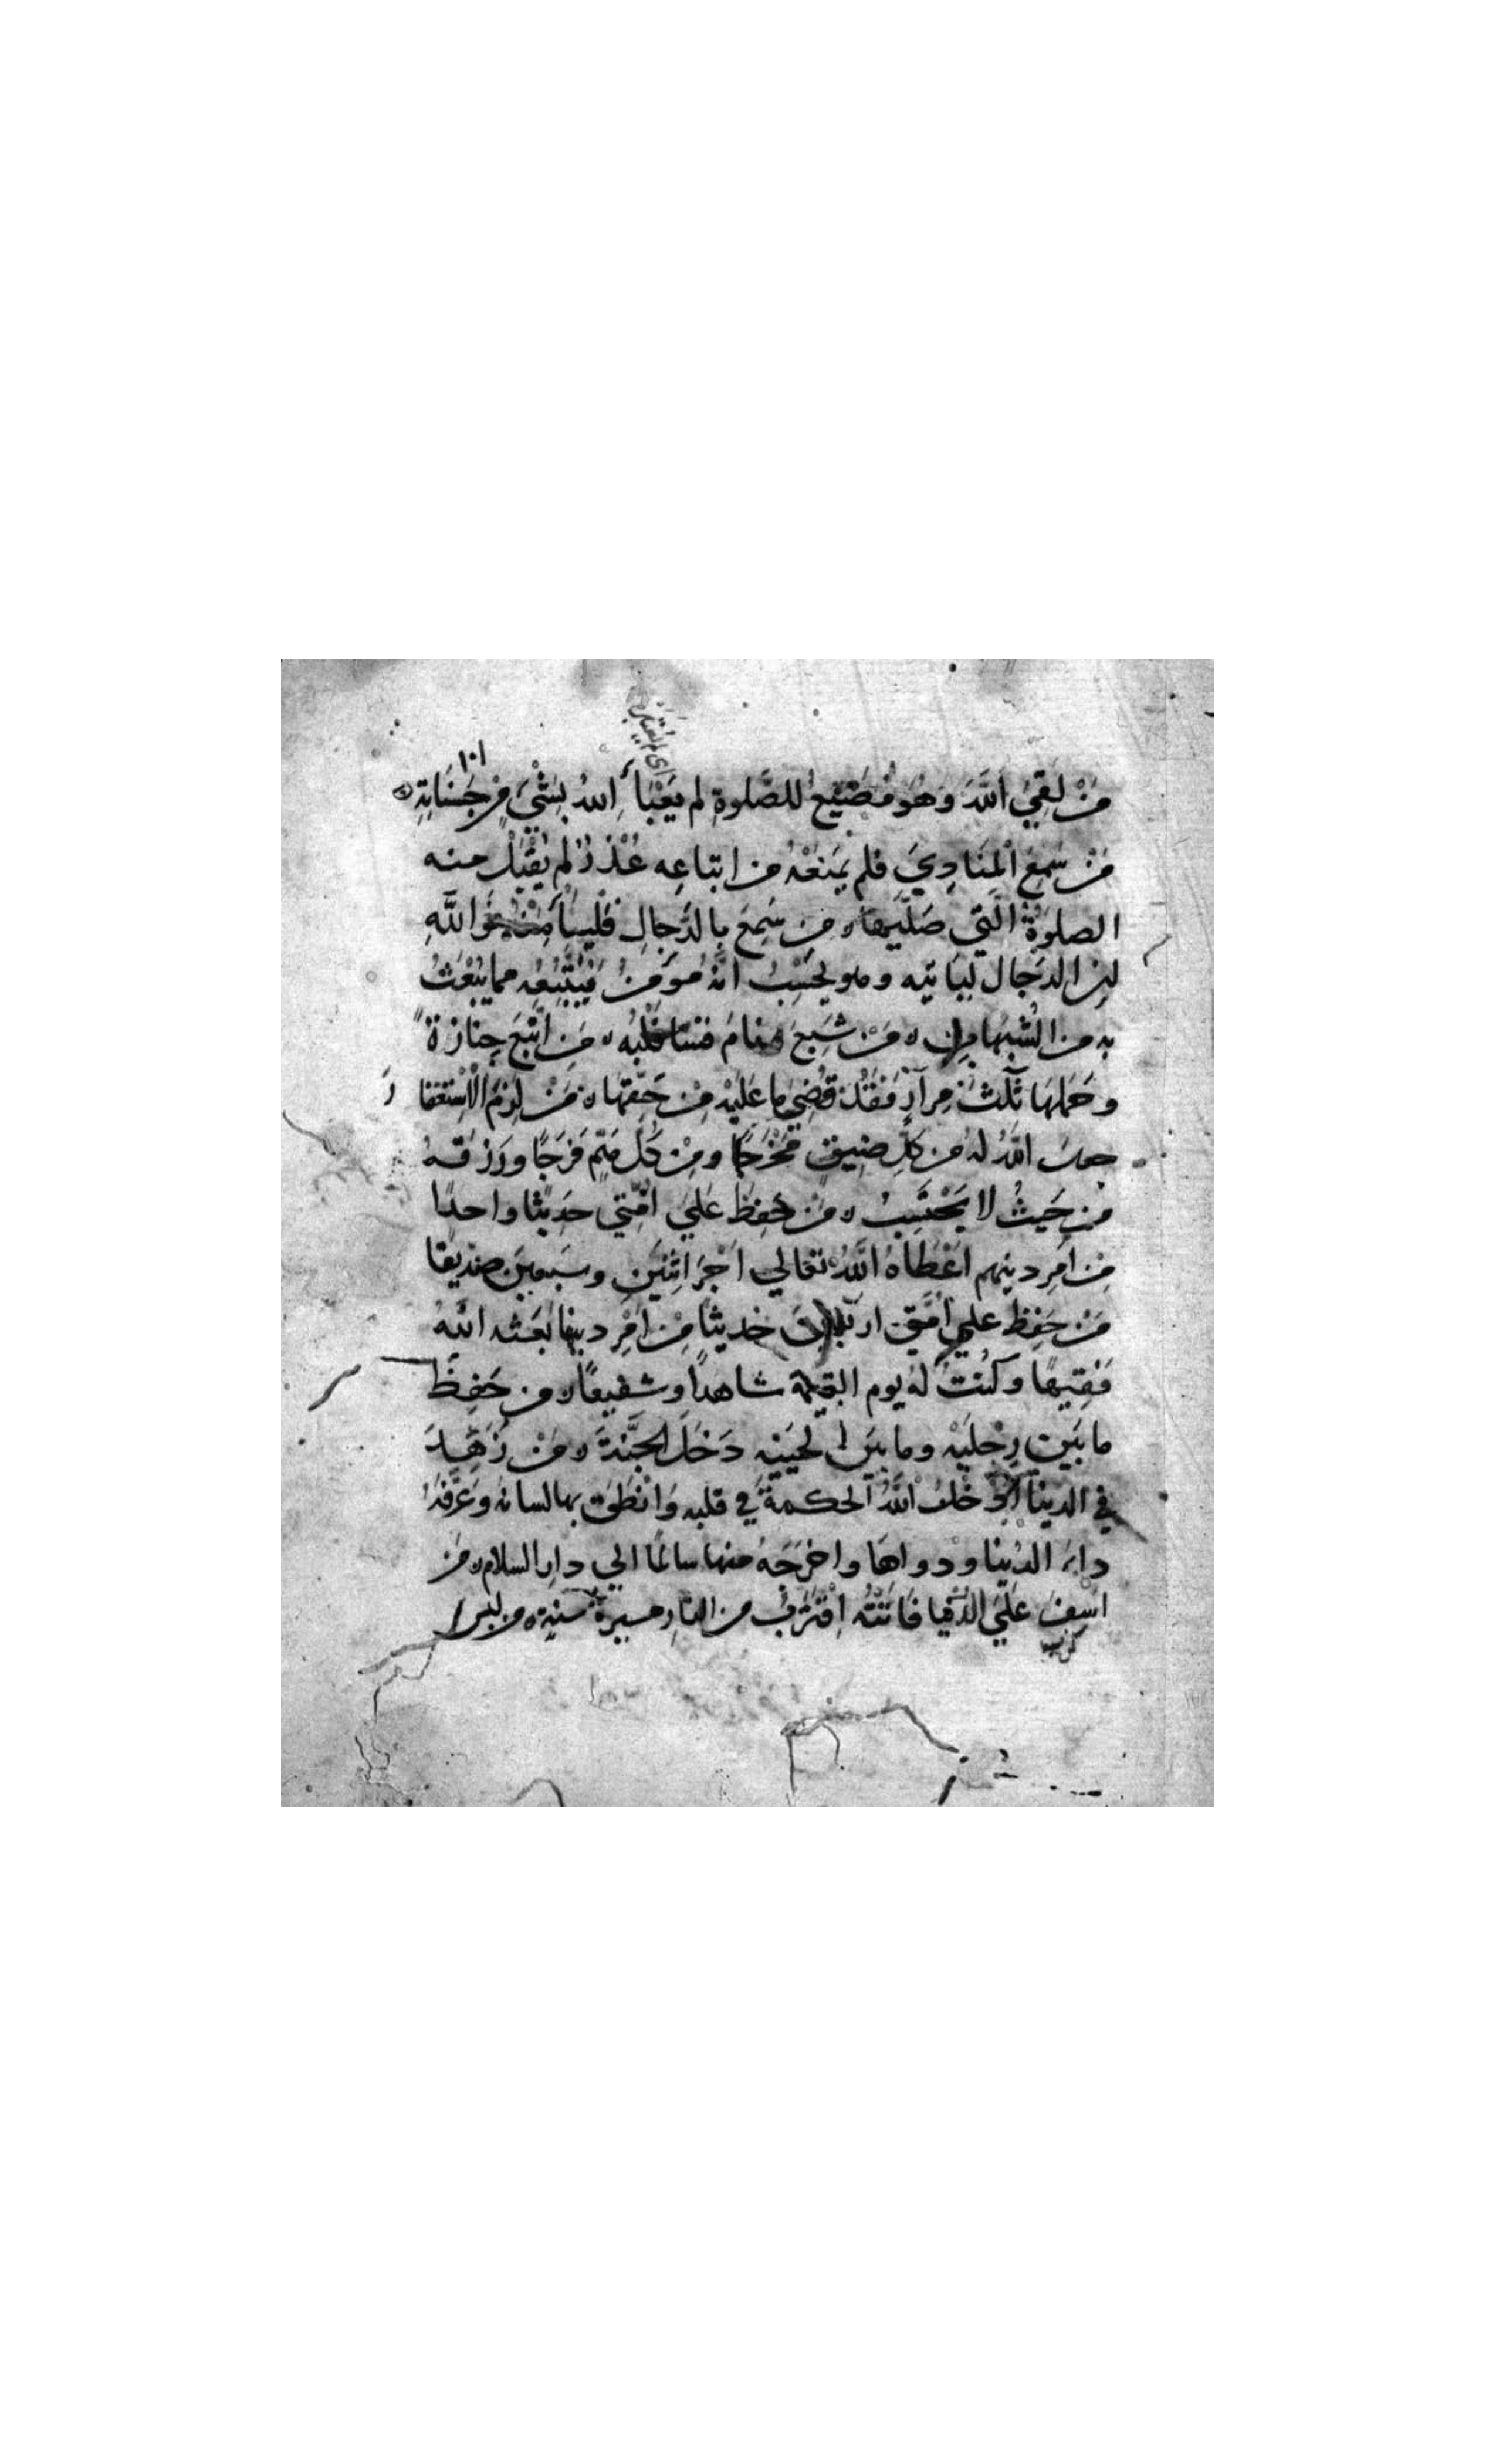 اى لم يعتبر
١٠١
مَنْ لَقِيَ اللَّهَ وَهُوَ مُضَيِّعٌ للصَّلوةِ لم يَعْبَأِ اللهُ بِشَيْءٍ مِنْ حَسَنَاتِهِ
مَنْ سَمِعَ الْمُنَادِيَ فلم يَمْنَعْهُ من اتباعِه عُذْرٌ لم يُقْبَلْ منه
الصلوةُ الَّتي صَلَّيها من سَمِعَ بالدَّجالِ فَلْيَنْأَ مِنْهُ فَوَاللَّهِ
اِنَّ الدجال ليأتيه وهو يَحْسِبُ انَّهُ مُومِنٌ فَيَتَّبِعُه مما يُبْعَثُ
به من الشبهات مَنْ شَبِعَ ونامَ قسا قَلْبُه مَنِ اتَّبَعَ جنازةً
وحَمَلَها ثَلثَ مِرَارٍ فَقَدْ قَضَي ما عَلَيْهِ مِنْ حَقِّهَا مَنْ لَزِمَ الْاِسْتِغْفا رَ
جعل اللهُ له من كلِّ ضِيقٍ مَخْرَجًا ومِنْ كُلِّ هَمٍّ فَرَجًا ورَزَقَهُ
مِن حَيْثُ لا يَحْتَسِبُ مَنْ حَفِظَ عَلَي اُمَّتي حَدِيثًا واحدًا
مِن اَمْرِ دينهم اَعْطَاهُ اللَّهُ تعالي اَجْرَ اثْنَيْنِ وسَبعينَ صِدِّيقا
مَنْ حَفِظ علي اُمَّتي اربَعين حديثًا مِنْ اَمْرِ دينها بَعَثه اللهُ
فَقِيهًا وكُنتُ لهُ يوم القيمة شاهدًا وشفيعًا من حَفِظَ
ما بَين رِجْلَيْهِ وما بَين لَحْيَيْهِ دَخَلَ الجَنَّةَ مَنْ زَهِدَ
في الدنيا اَدْخَلَ اللَّهُ الحكمةَ في قلبه وَاَنْطَقَ بها لسانه وعَرَّفَهُ
داءَ الدُّنيا ودواهَا واخْرَجَهُ منها سالمًا الي دارِ السلام مَنْ
اَسِفَ عَلَي الدُّنيا فَاتَتْهُ اِقْتَرَبَ من النارِ مسيرةَ سنةٍ من لبس